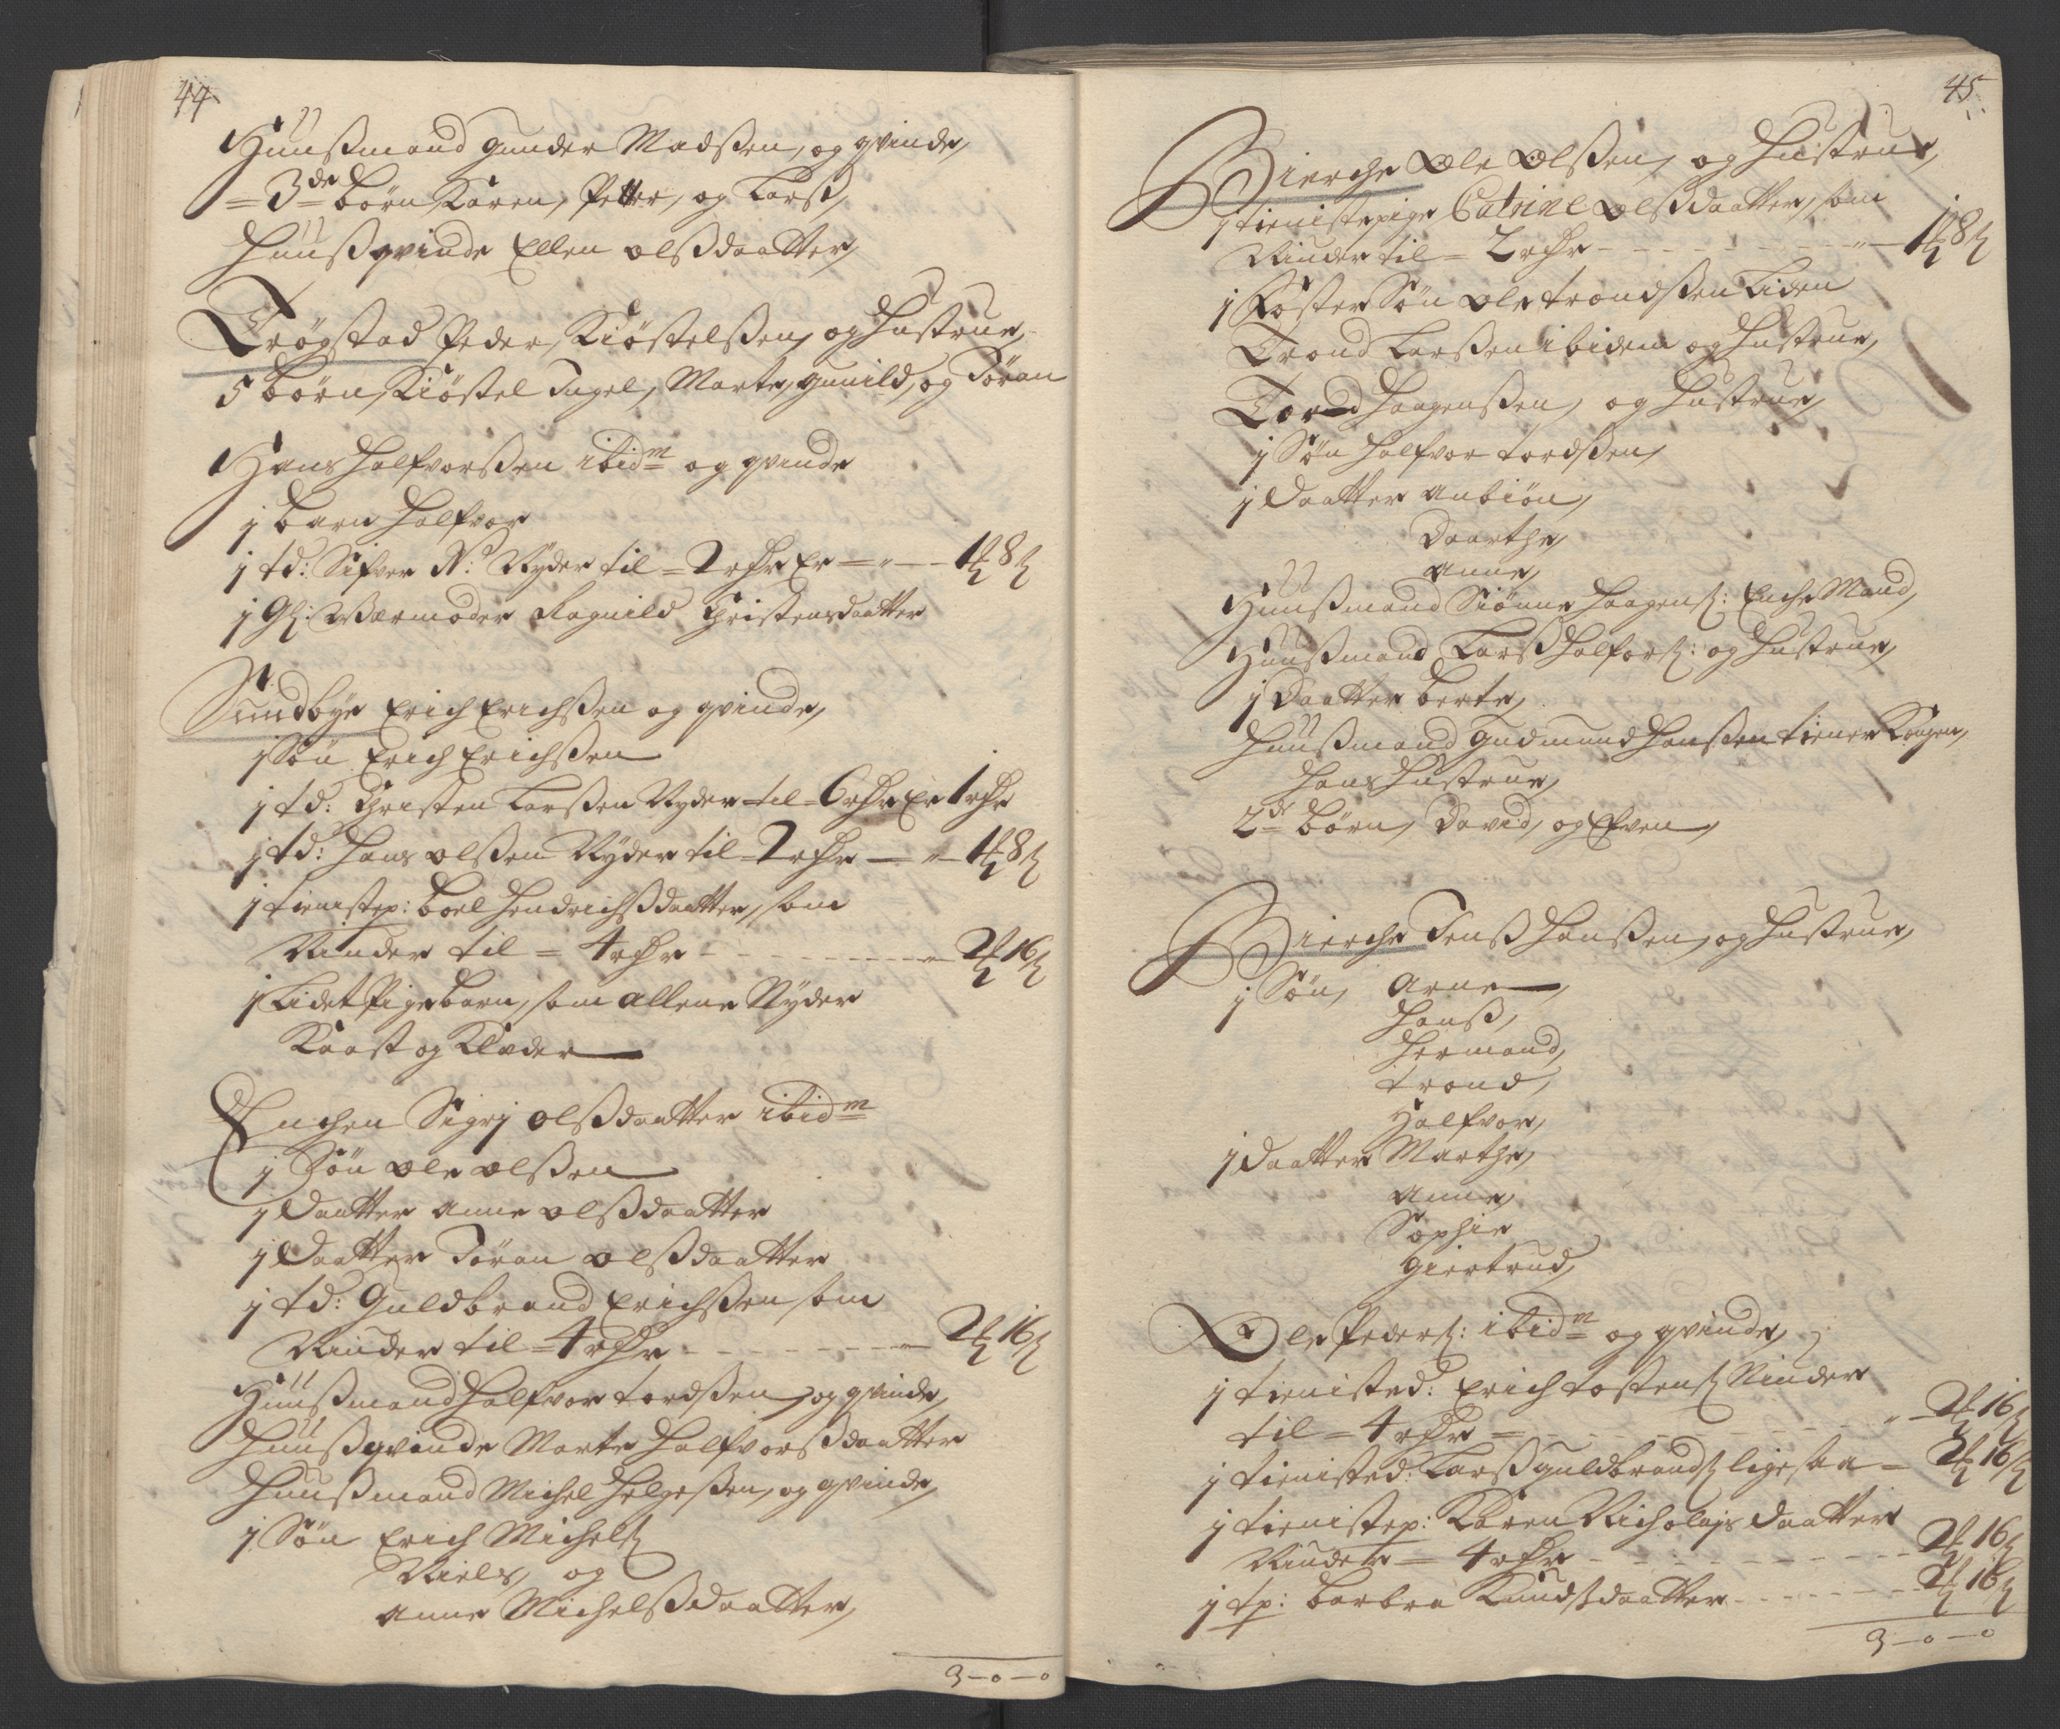 44
Huusmand Gunder Madssen, og qvinde,
= 3de børn Karen, Petter, og Larss,
Huussqvinde Ellen Olssdaatter,
Trøgstad Peder Kiøstelssen, og Hustrue,
5 børn, Kiøstel Ingel, Marte, gunild, og Jøran
Hans Halfvorssen ibidm og qvinde
j barn Halfvor
j td: Sifver N: Nyder til = 2 rdr Er = " — 1 ℔ 8 ß
j Gl: Wærmoder Ragnild Christensdaatter
Sundbye Erich Erichssen og qvinde,
j Søn Erich Erichssen
j td: Christen Larssen Nyder til = 6 rdr Er 1 rdr
j td: Hans Olssen Nyder til = 2 rdr — " — 1 ℔ 8 ß
j tienistep: boel Hendrichssdaatter, som
Niuder til = 4 rdr - - - - - - - " — 2 ℔ 16 ß
j Lidet Pigebarn, som allene Nyder
Kaast og Klæder
Enchen Sigrj Olssdaatter ibidm
j Søn Ole Olssen
j Daatter Anne Olssdaatter
j Daatter Jøran Olssdaatter
j td: Guldbrand Erichssen som
Niuder til = 4 rdr - - - - - - - — 2 ℔ 16 ß
Huussmand Halfvor tordssen, og qvinde,
Huussqvinde Marte Halfvorssdaatter
Huussmand Michel Helgessen, og qvinde,
j Søn Erich Michelß
Niels, og
Anne Michelssdaatter,
3 — o — o
45
Bierche Ole Olssen, og Hustrue,
j tienistepige Catrine Olssdaatter, som
Niuder til = 2 rdr - - - - - - - - " — 1 ℔ 8 ß
j Foster Søn Ole trondssen Liden
Trond Larssen ibidem og Hustrue,
Tord Haagenssen, og Hustrue,
j Søn Halfvor tordssen,
j Daatter Anbiøn,
Daarthe,
Anne,
Huussmand Siønne Haagenß: Enche Mand,
Huussmand Larss Halforß: og Hustrue,
j Daatter berte,
Huussmand Gudmund Hanssen tiener Kongen,
Hans Hustrue,
2de børn, David, og Efven,
Bierche Jenss Hanssen, og Hustrue,
j Søn, Arne,
Hanss,
Hermand,
trond,
Halfvor,
j Daatter Marthe,
Anne,
Sophie
Giertrud,
Ole Pederß: ibidm og qvinde,
j tienisted: Erich tostenß Niuder
til = 4 rdr = - - - - - - - " — 2 ℔ 16 ß
j tienisted: Larss guldbrandß ligesaa = 2 ℔ 16 ß
j tienistep: Karen Nicholajs Daatter
Niuder = 4 rdr - - - - - - - - 2 ℔ 16 ß
j tp: barbra Knudssdaatter - - - - - - 2 ℔ 16 ß
3 — o — o